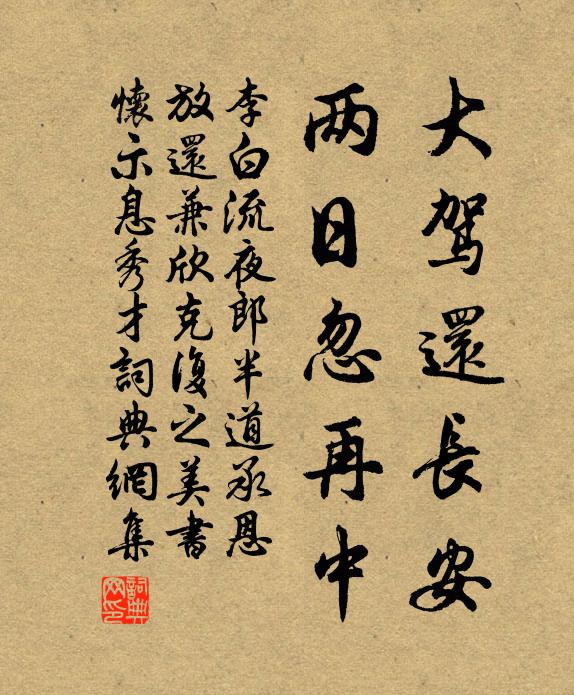 大駕還長安
两日忽再中
李白流夜郎半道承恩
放還兼欣克復之美書
懷示息秀才詞典網集
詞典网印